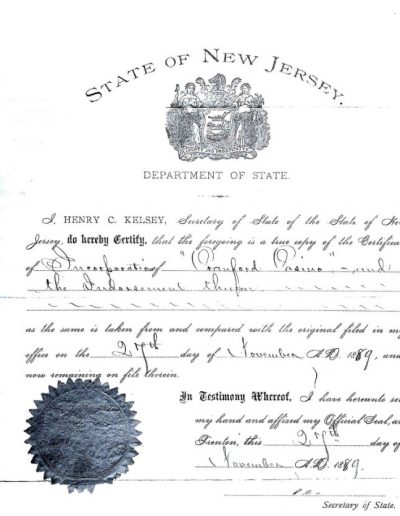 STATE OF NEW JERSEY.
DEPARTMENT OF STATE.
I, HENRY C. KELSEY, Secretary of State of the State of Ne
Jersey, do hereby Certify, that the foregoing is a true copy of the Certifica
of Incorporation of "Cranford Casino," and
the Indorsement thereon
as the same is taken from and compared with the original filed in my
office on the 27th day of November A.D. 1889, and
now remaining on file therein.
In Testimony Whereof, I have hereunto se
my hand and affixed my Official Seal, a
Trenton, this 27th day of
November A.D. 1889.
Secretary of State.